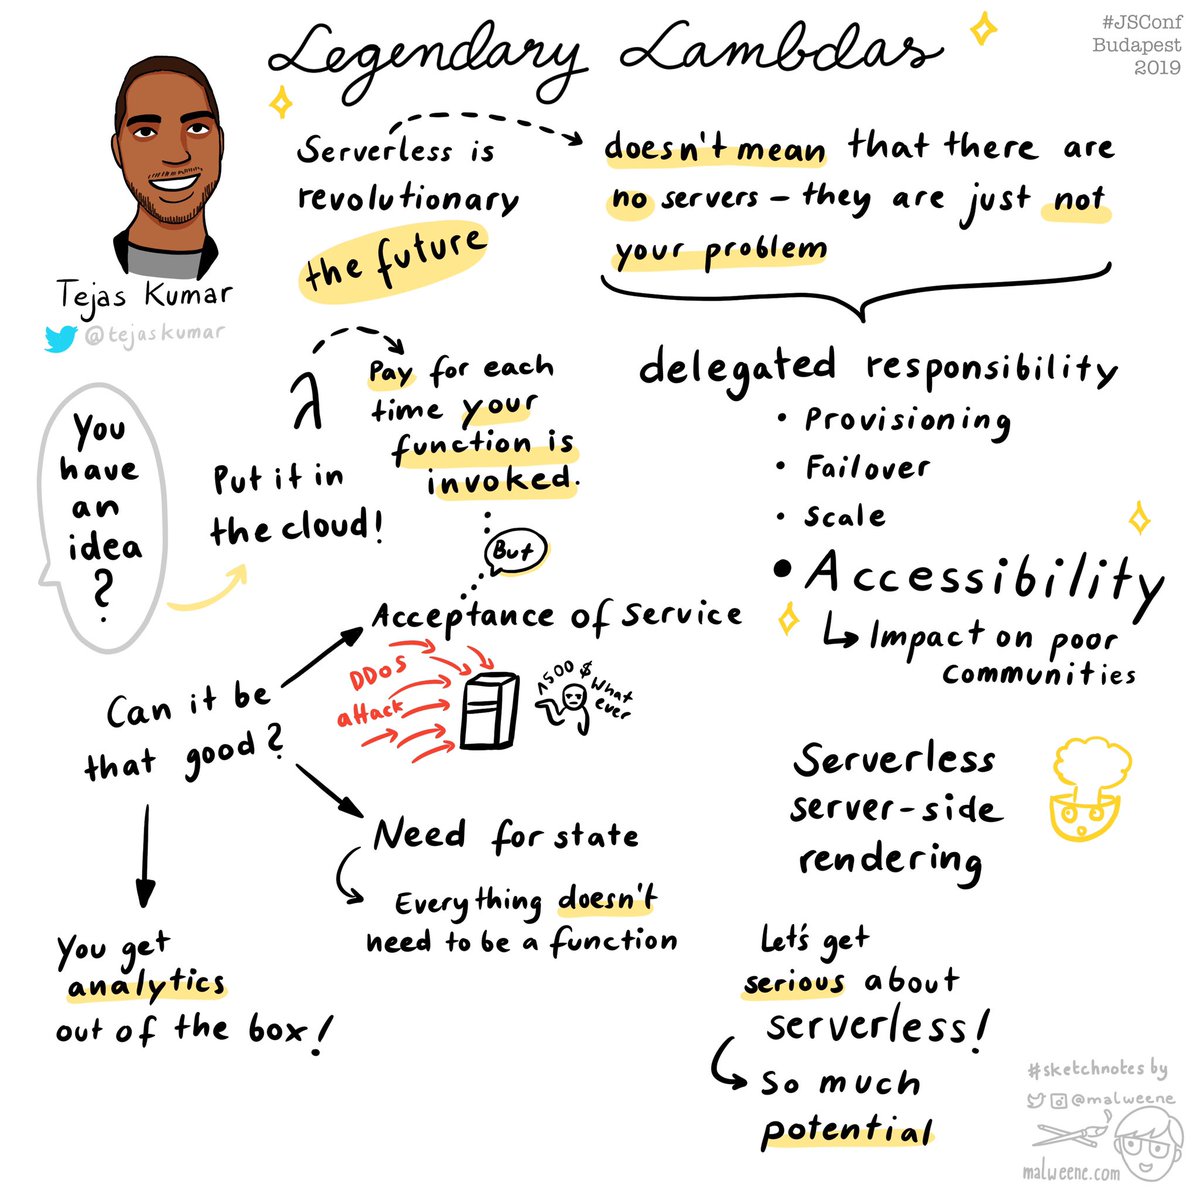 Legendary Lambdas
#JSConf
Budapest
2019
Tejas Kumar
@tejaskumar
Serverless is
revolutionary
the future
doesn't mean that there are
no servers – they are just not
your problem
delegated responsibility
• Provisioning
• Failover
• Scale
• Accessibility
Impact on poor
communities
You
have
an
idea
?
Put it in
the cloud!
λ
Pay for each
time your
function is
invoked.
But
Acceptance of Service
DDoS
attack
1500 $
What
ever
Can it be
that good?
Need for state
Everything doesn't
need to be a function
You get
analytics
out of the box!
Serverless
server-side
rendering
Let's get
serious about
serverless!
So much
potential
#sketchnotes by
@malweene
malweene.com